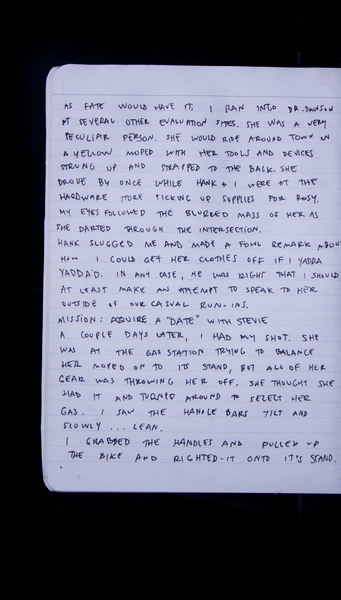 AS FATE WOULD HAVE IT, I RAN INTO DR. DAWSON
AT SEVERAL OTHER EVALUATION SITES. SHE WAS A VERY
PECULIAR PERSON. SHE WOULD RIDE AROUND TOWN IN
A YELLOW MOPED WITH HER TOOLS AND DEVICES
STRUNG UP AND STRAPPED TO THE BACK. SHE
DROVE BY ONCE WHILE HANK & I WERE AT THE
HARDWARE STORE PICKING UP SUPPLIES FOR ROSY.
MY EYES FOLLOWED THE BLURRED MASS OF HER AS
SHE DARTED THROUGH THE INTERSECTION.
HANK SLUGGED ME AND MADE A FOUL REMARK ABOUT
HOW I COULD GET HER CLOTHES OFF IF I YADDA
YADDA'D. IN ANY CASE, HE WAS RIGHT THAT I SHOULD
AT LEAST MAKE AN ATTEMPT TO SPEAK TO HER
OUTSIDE OF OUR CASUAL RUN-INS.
MISSION: ACQUIRE A "DATE" WITH STEVIE
A COUPLE DAYS LATER, I HAD MY SHOT. SHE
WAS AT THE GAS STATION TRYING TO BALANCE
HER MOPED ON TO ITS STAND, BUT ALL OF HER
GEAR WAS THROWING HER OFF. SHE THOUGHT SHE
HAD IT AND TURNED AROUND TO SELECT HER
GAS. I SAW THE HANDLE BARS TILT AND
SLOWLY ... LEAN.
I GRABBED THE HANDLES AND PULLED UP
THE BIKE AND RIGHTED-IT ONTO IT'S STAND.